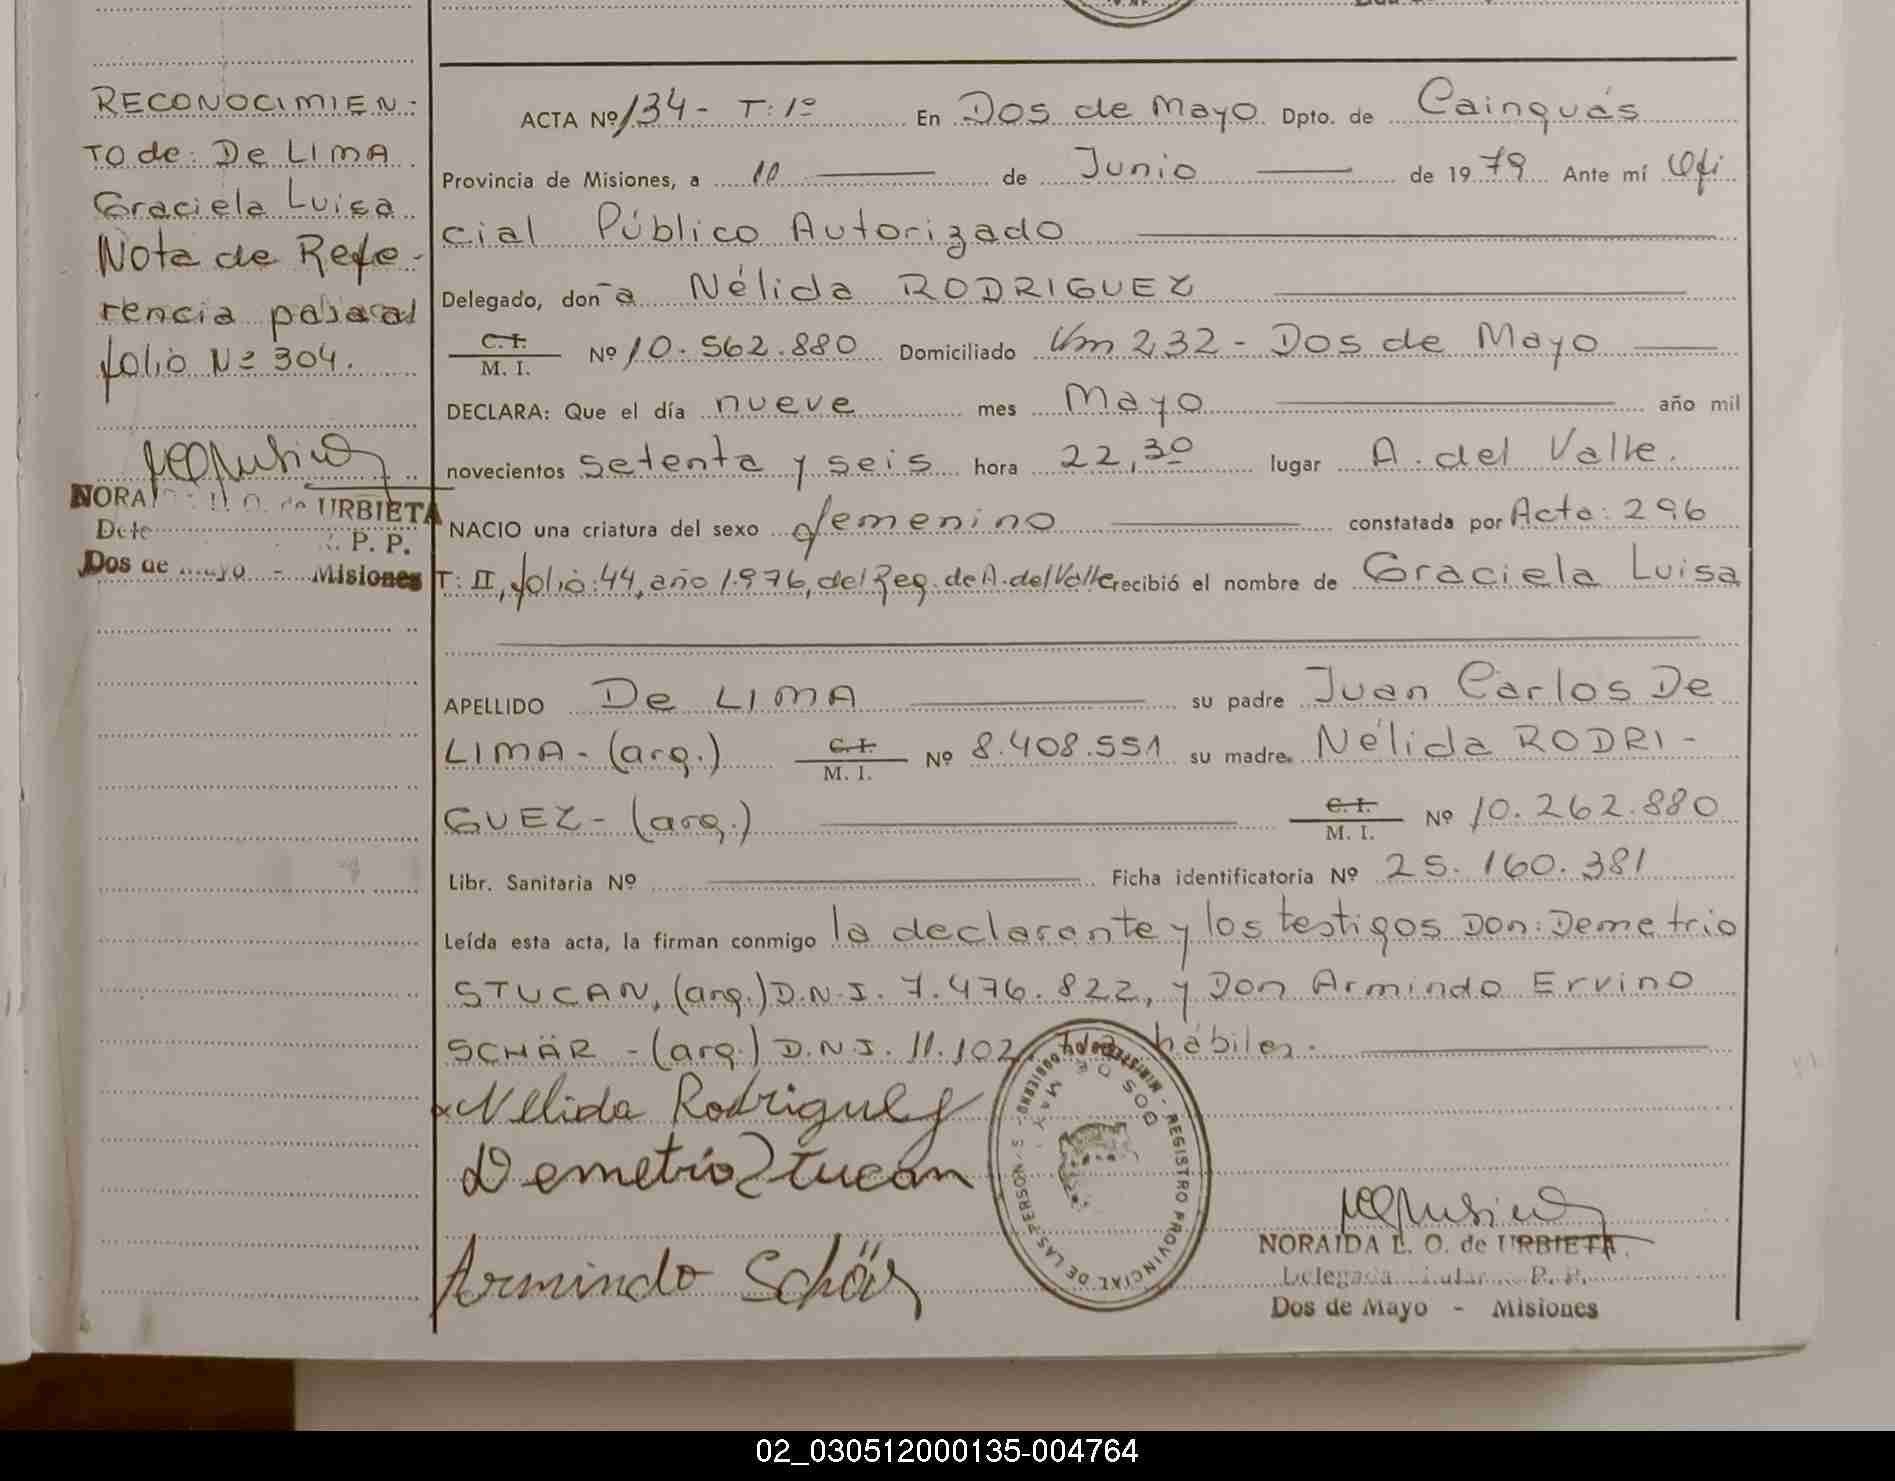 RECONOCIMIEN-
TO de: De LIMA
Graciela Luisa
Nota de Refe-
rencia pasa al
folio Nº 304.
NORA O. de URBIETA
P. P.
Dos de Mayo - Misiones
ACTA Nº 134 - T: 1º En Dos de Mayo Dpto. de Cainguás
Provincia de Misiones, a 10 de Junio de 1979 Ante mí Ofi
cial Público Autorizado
Delegado, don-a Nélida RODRIGUEZ
C. I. / M. I. Nº 10.562.880 Domiciliado Km 232 - Dos de Mayo
DECLARA: Que el día nueve mes Mayo año mil
novecientos setenta y seis hora 22,30 lugar A. del Valle.
NACIO una criatura del sexo femenino constatada por Acta: 296
T: II, folio: 44, año 1.976, del Reg. de A. del Valle recibió el nombre de Graciela Luisa
APELLIDO De LIMA su padre Juan Carlos De
LIMA - (arg.) C. I. / M. I. Nº 8.408.551 su madre Nélida RODRI-
GUEZ - (arg.) C. I. / M. I. Nº 10.262.880
Libr. Sanitaria Nº Ficha identificatoria Nº 25.160.381
Leída esta acta, la firman conmigo la declarante y los testigos Don: Demetrio
STUCAN, (arg.) D.N.I. 7.476.822, y Don Armindo Ervino
SCHÄR - (arg.) D.N.I. 11.102. hábiles.
Nélida Rodriguez
Demetrio Stucan
Armindo Schär
MINISTERIO DE GOBIERNO - REGISTRO PROVINCIAL DE LAS PERSONAS
DOS DE MAYO
NORAIDA L. O. de URBIETA
Delegada Titular R. P.
Dos de Mayo - Misiones
02_030512000135-004764